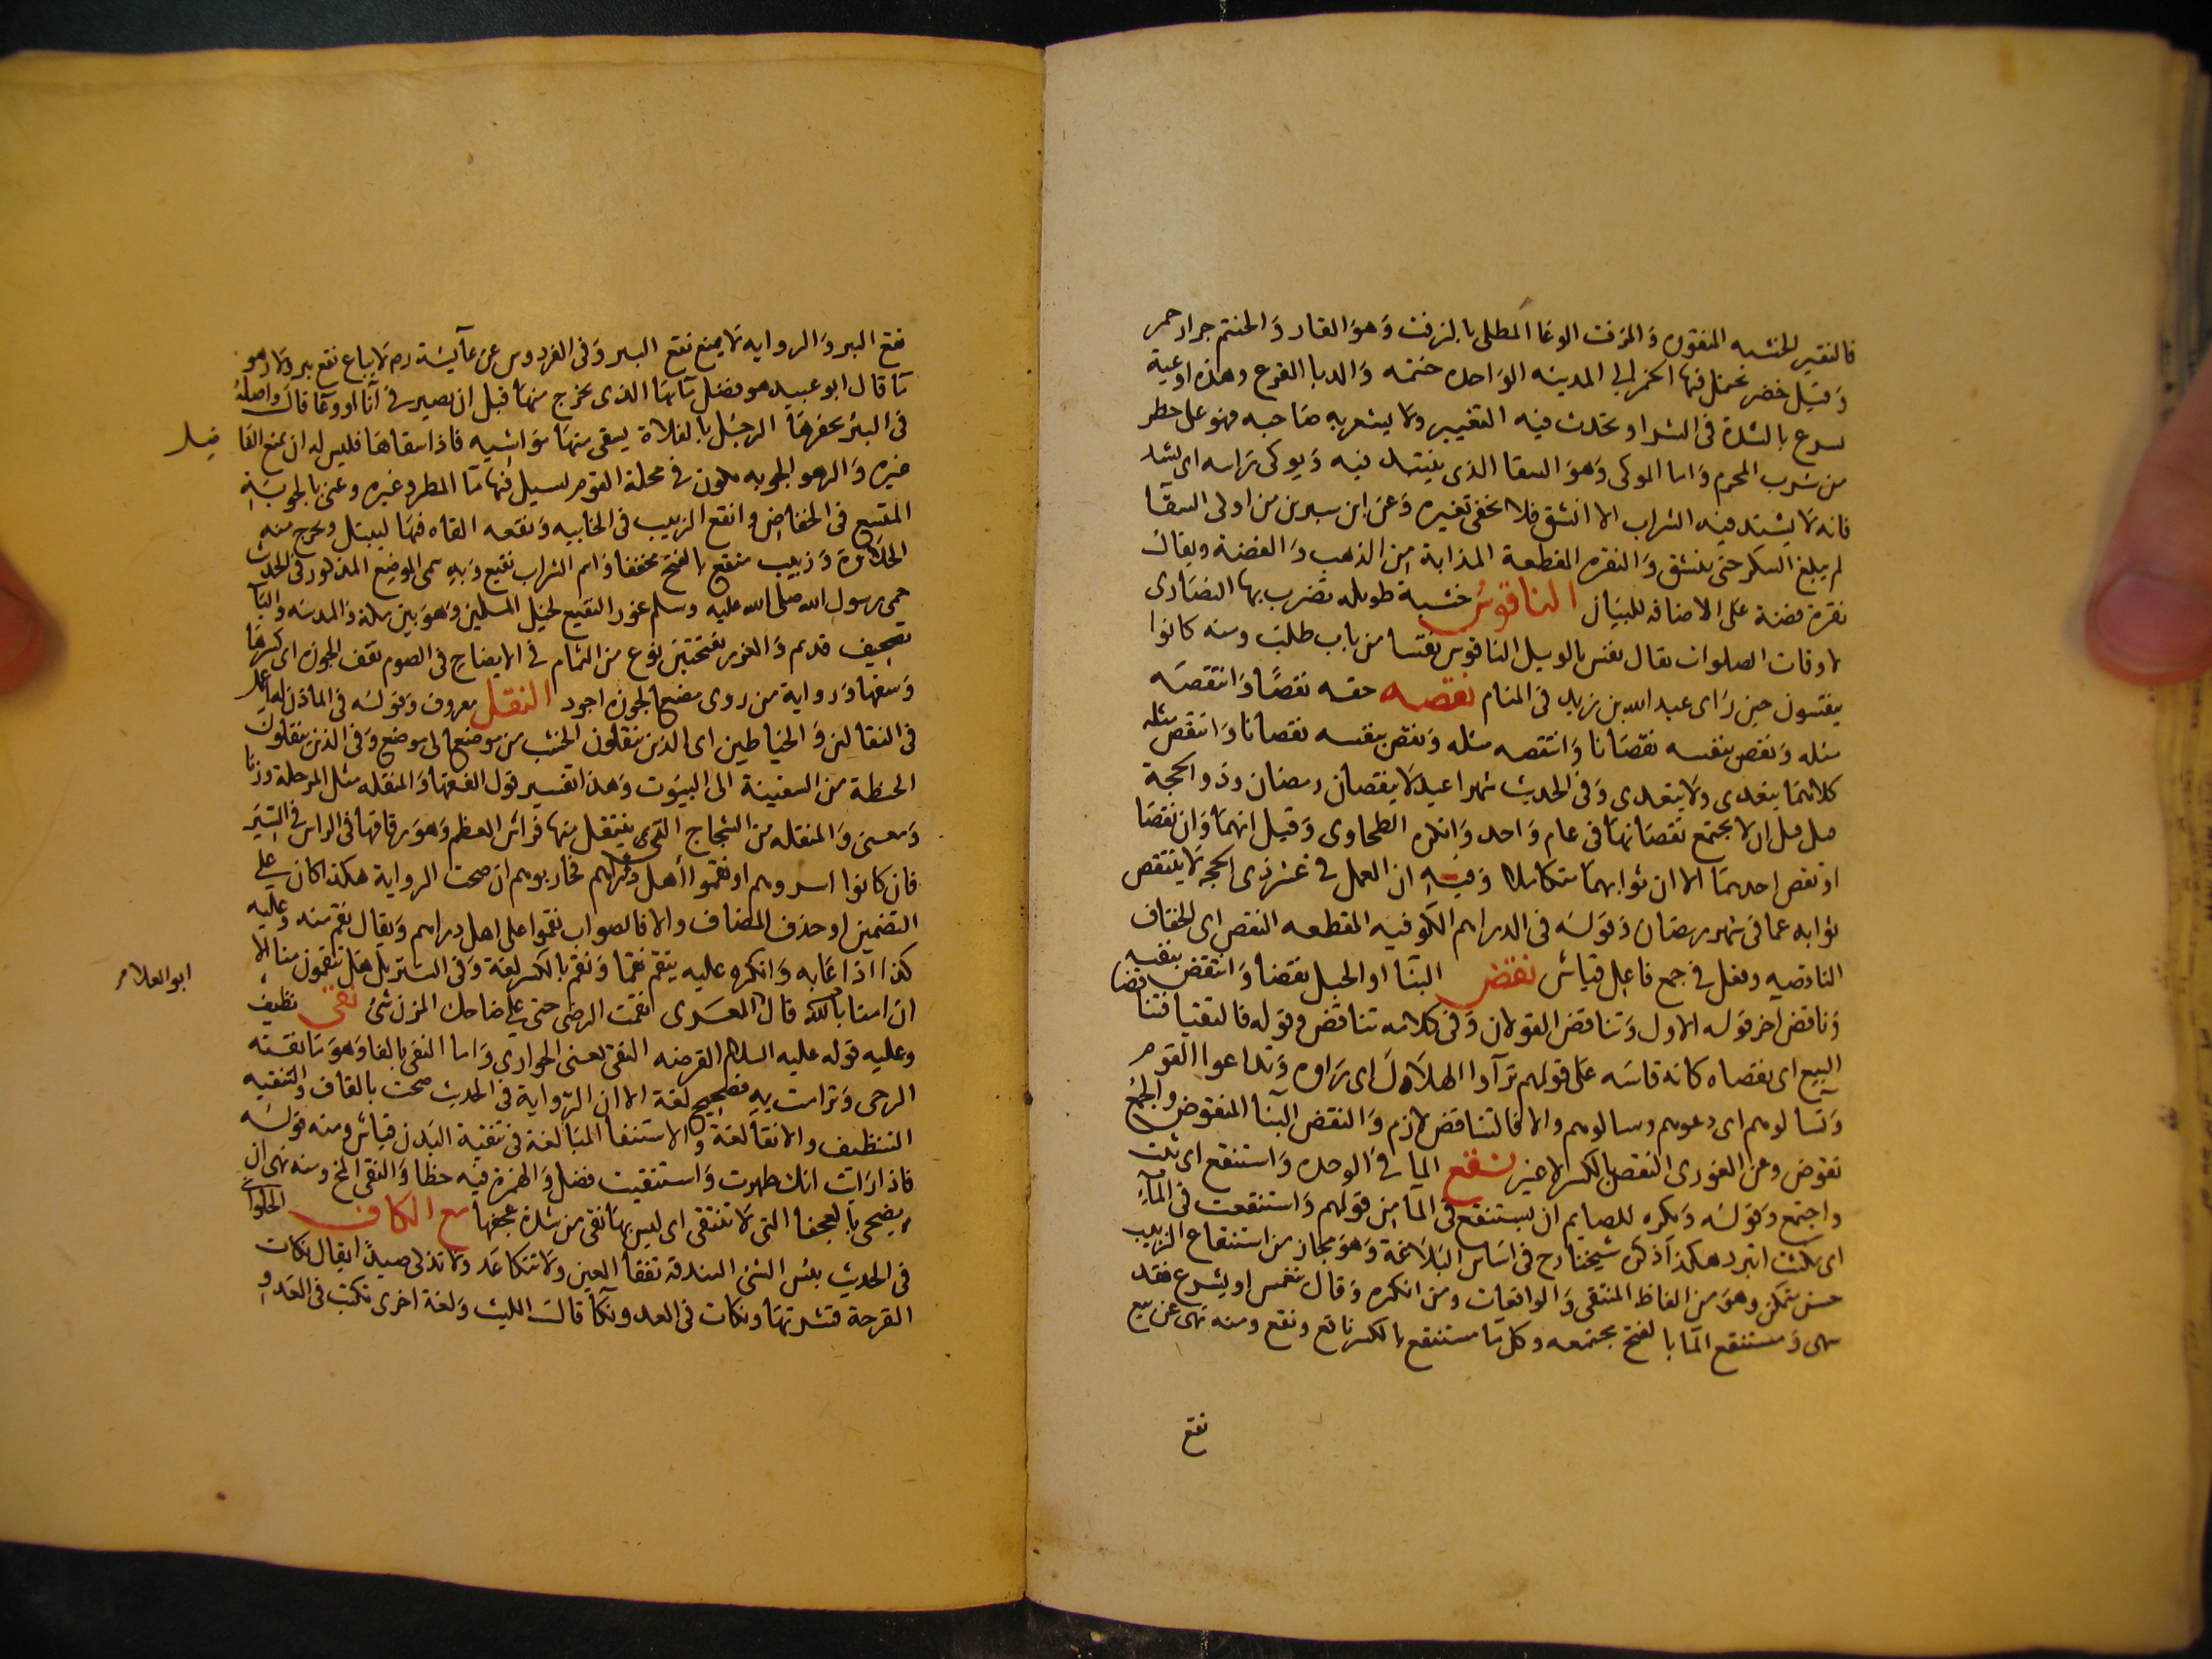 فالنقير الخشبه المنقوره والمزفت الوعا المطلى بالزفت وهو القار والحنتم جرار حمر
وقيل خضر تحمل فيها الخمر الى المدينه الواحده حنتمه والدبا القرع وهذه اوعية
تسرع بالشدة فى الشراب وتحدث فيه التغيير ولا يشعر به صاحبه فهو على خطر
من شرب المحرم واما الموكى وهو السقا الذى ينتبذ فيه ويوكى راسه اى يشد
فانه لا يشتد فيه الشراب الا انشق فلا يخفى تغيره وعن ابن سيرين من اوكى السقا
لم يبلغ السكر حتى ينشق والنقره القطعة المذابة من الذهب والفضة ويقال
نقرة فضة على الاضافه للبيان الناقوس خشبة طويله تضرب بها النصارى
لاوقات الصلوات يقال نقس بالوبيل الناقوس نقسا من باب طلب ومنه كانوا
ينقسون حين راى عبد الله بن زيد فى المنام نقصه حقه نقصا وانتقصه
مثله ونقص بنفسه نقصانا وانتقصه مثله ونقص بنفسه نقصانا وانتقص مثله
كلاهما يتعدى ولا يتعدى وفى الحديث شهرا عيد لا ينقصان رمضان وذو الحجة
قيل اراد لا يجتمع نقصانهما فى عام واحد وانكره الطحاوى وقيل انهما وان نقصا
او نقص احدهما الا ان ثوابهما متكامل وفيه ان العمل فى عشر ذى الحجه لا ينتقص
ثوابه عما فى شهر رمضان وقوله فى الدراهم الكوفيه المقطعه النقص اى الخفاف
الناقصه وفعل فى جمع فاعل قياس نقض البنا او الحبل نقضا وانتقض بنفسه
وناقض اخر قوله الاول وتناقض القولان وفى كلامه تناقض وقوله فالتقيا فتناقضا
البيع اى نقضاه كانه قاسه على قولهم تراآوا الهلال اى راوه وتداعوا القوم
وتسالوهم اى دعوهم وسالوهم والا فالتناقض لازم والنقض البنا المنقوض والجمع
نقوض وعن الغورى النقض بالكسر لا غير نقع الما فى الوهده واستنقع اى ثبت
واجتمع وقوله ويكره للصايم ان يستنقع فى الما من قولهم واستنقعت فى الماء
اى مكثت اتبرد هكذا ذكره شيخنا رح فى اساس البلاغة وهو مجاز من استنقاع الزبيب
حسن متمكن وهو من الفاظ المنتقى والواقعات ومن انكره وقال ينغمس او يشرع فقد
سهى ومستنقع الما بالفتح مجتمعه وكل ما مستنقع بالكسر ناقع ونقع ومنه نهى عن بيع
نقع
نقع البير والروايه لا يمنع نقع البير وفى الفردوس عن عايشة رض لا يباع نقع بير ولا رهو
ما قال ابو عبيد هو فضل مآئها الذى يخرج منها قبل ان يصير فى انا او وعا قال واصله
فى البئر يحفرها الرجل بالفلاة يسقى منها مواشيه فاذا سقاها فليس له ان يمنع الفا
ضل
غيره والرهو الجوبه تكون فى محلة القوم يسيل فيها ما المطر وغيره وعنى بالجوبة
المتسع فى انخفاض وانقع الزبيب فى الخابيه ونقعه القاه فيها ليبتل ويخرج منه
الحلاوة وزبيب منقع بالفتح مخففا واسم الشراب نقيع وبه سمى الموضع المذكور فى الحديث
حمى رسول الله صلى الله عليه وسلم غور النقيع لخيل المسلمين وهو بين مكة والمدينه والبا
تصحيف قديم والغور بفتحتين نوع من الثمام فى الايضاح فى الصوم نقف الجوزه اى كسرها
وشقها ورواية من روى مضغ الجوزه اجود النقل معروف وقوله فى الماذون لها عمد
فى النقالين والحناطين اى الذين ينقلون الخشب من موضع الى موضع وفى الذين ينقلون
الحنطة من السفينة الى البيوت وهذا تفسير قول الفقها والمنقله مثل المرحلة وزنا
ومعنى والمنقله من الشجاج التى ينتقل منها فراش العظم وهو رقاقها فى الراس فى السير
فان كانوا اسروهم او نقموا اهل دارهم فحاربوهم ان صحت الرواية هكذا كان على
التضمين او حذف المضاف والا فالصواب نقموا على اهل دراهم ويقال نقم منه وعليه
كذا اذا عابه وانكره عليه ينقم نقما ونقم بالكسر لغة وفى التنزيل هل تنقمون منا الا
ان امنا بالله قال المعرى انقمت الرضى حتى على ضاحك المزن شئ نقى نظيف
ابو العلا
وعليه قوله عليه السلام القرصه النقى يعنى الحوارى واما النفى بالفا وهو ما نفته
الرحى وترامت به فصحيح لغة الا ان الرواية فى الحديث صحت بالقاف والتنقيه
التنظيف والانقا لغة والاستنقا المبالغة فى تنقية البدن قياس ومنه قوله
فاذا رايت انك طهرت واستنقيت فضل والهمزة فيه خطا والنقى المخ ومنه نهى ان
يضحى بالعجفا التى لا تنقى اى ليس بها نقى من شدة عجفها مع الكاف الحلوانى
فى الحديث بئس الشئ البندقه تفقا العين ولا تنكا عدوا ولا تذكى صيدا يقال نكات
القرحة قشرتها ونكات فى العدو نكا قال الليث ولغة اخرى نكيت فى العدو